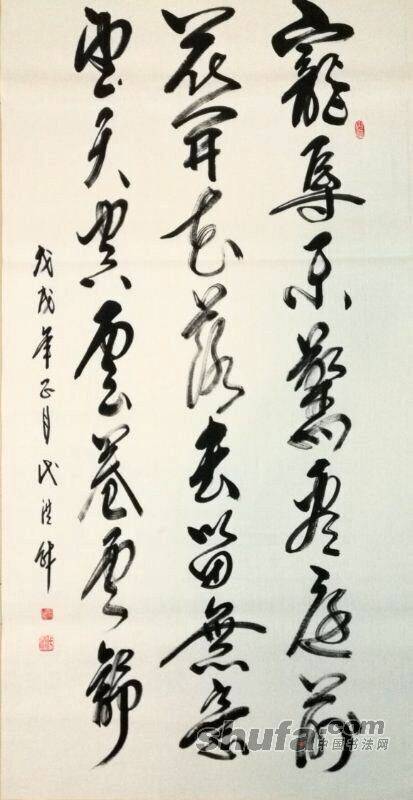 寵辱不驚看庭前
花開花落去留無意
望天空雲卷雲舒
戊戌年正月
shufa.com
中国书法网